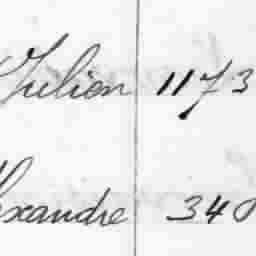 Julien 1173
exandre 34